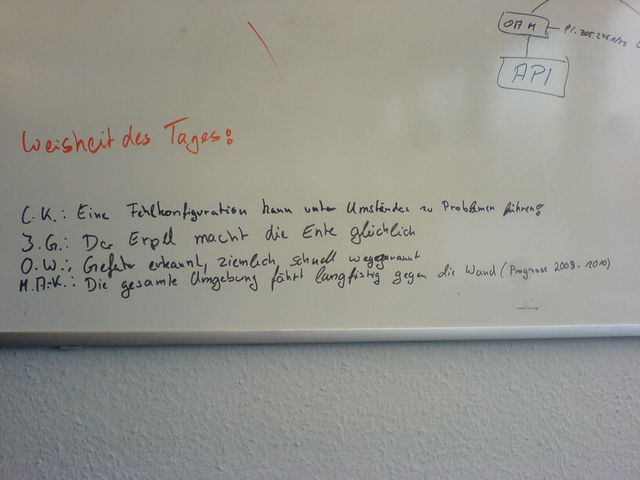 OAM
API
Weisheit des Tages:
C.K.: Eine Fehlkonfiguration kann unter Umständen zu Problemen führen!
J.G.: Der Erpel macht die Ente glücklich
O.W.: Gefahr erkannt, ziemlich schnell weggerannt
M.A.-K.: Die gesamte Umgebung fährt langfristig gegen die Wand (Prognose 2009 - 2010)